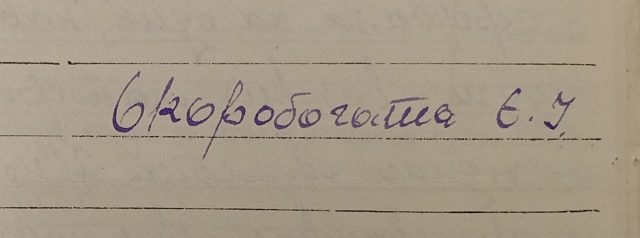 Скоробогата Є. І.